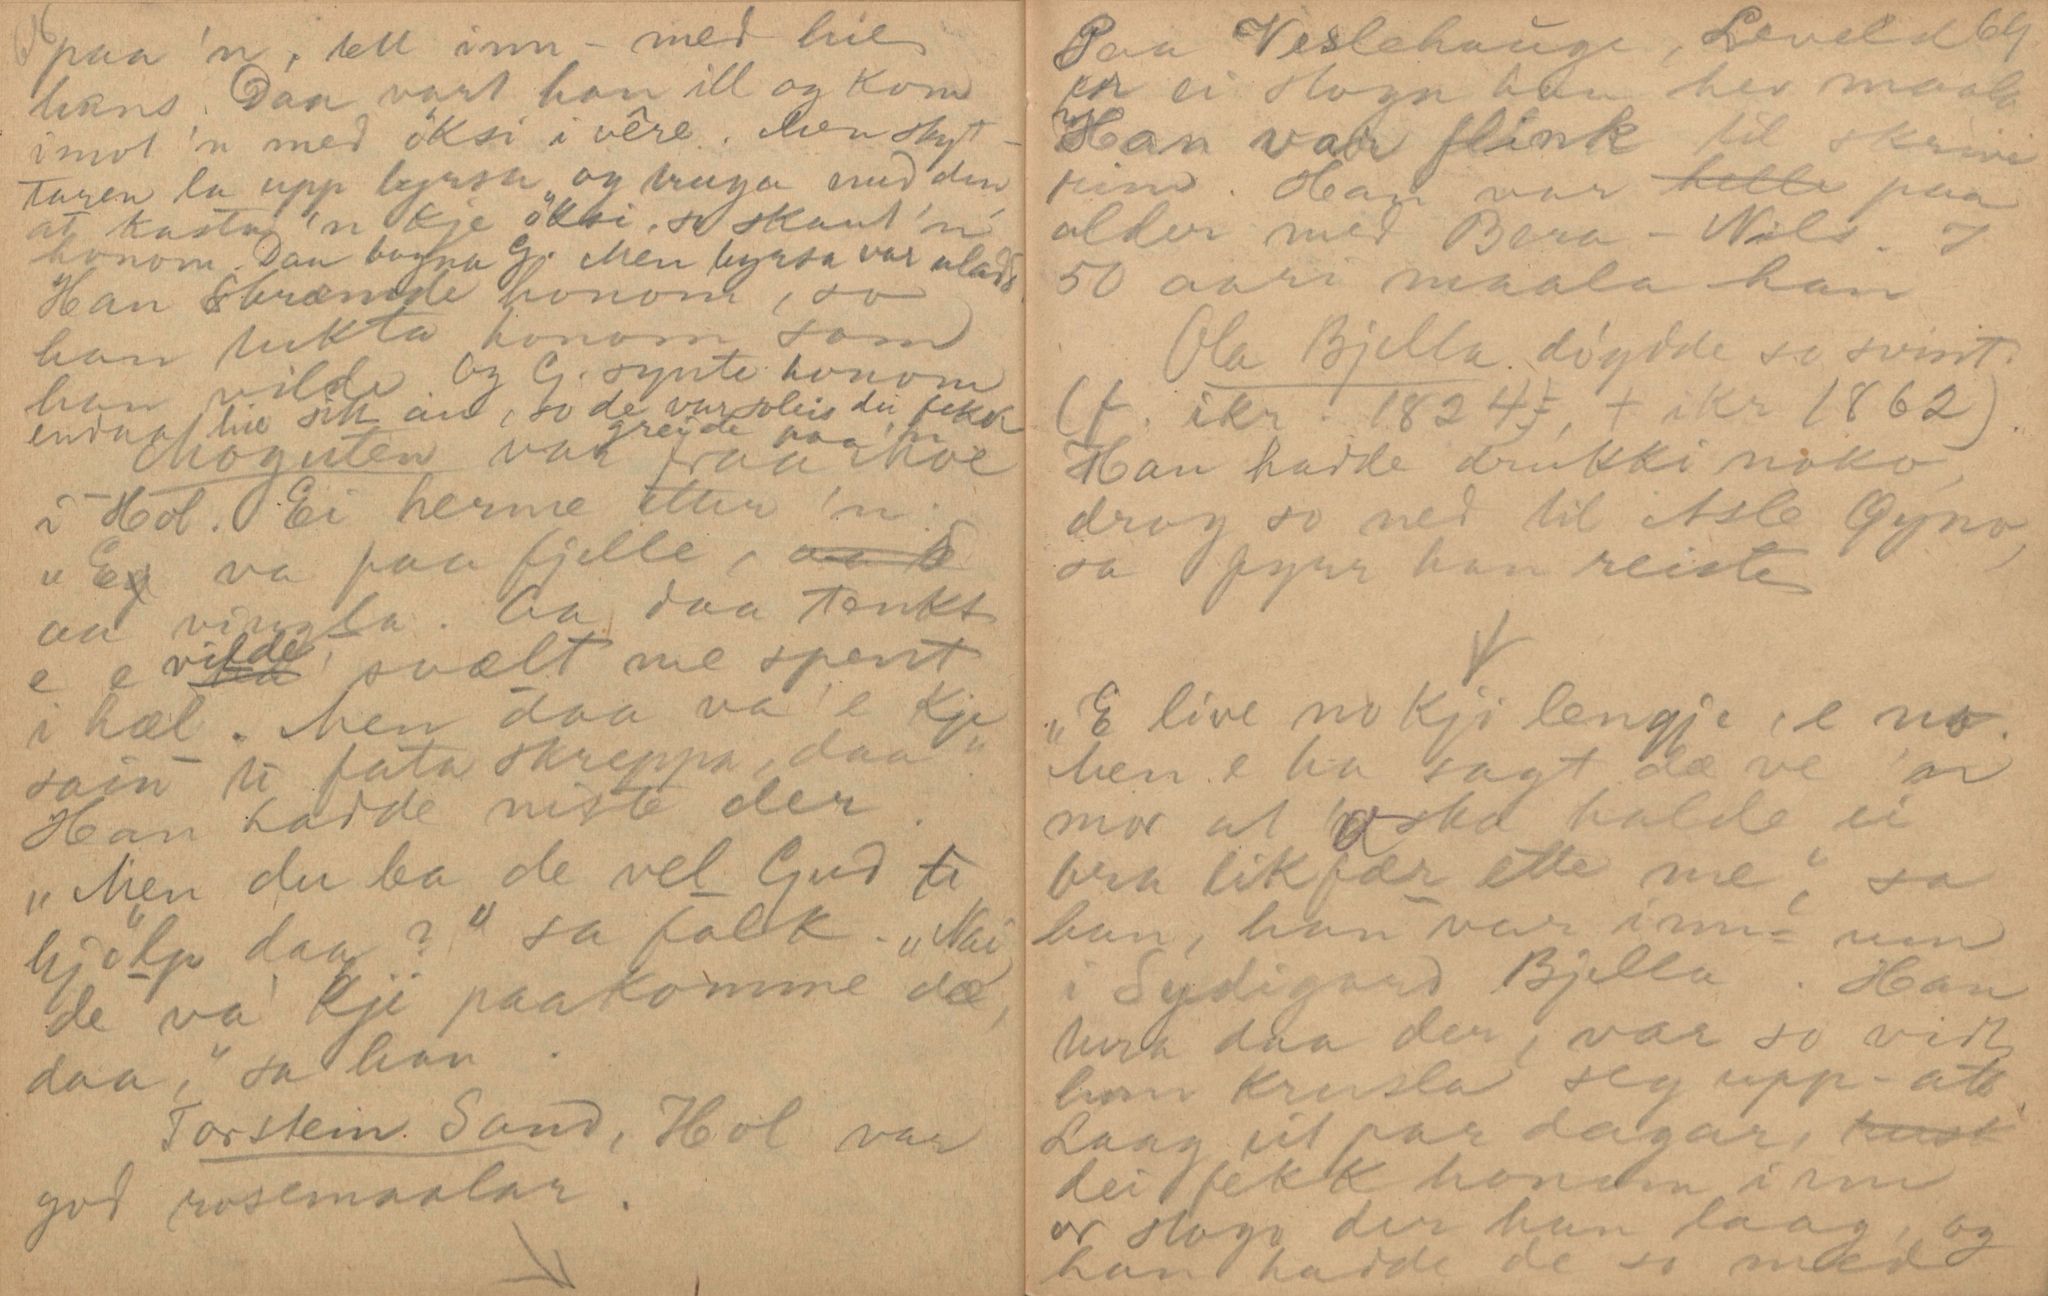 paa 'n, tett inn-med hie
hans. Daa vart han ill og kom
imot 'n med öksi i vêre. Men skyt-
taren la upp byrsa og truga med den,
at kasta 'n kje öksi, so skaut 'n
honom. Daa bogna G. Men byrsa var uladd.
Han skræmde honom, so
han lukta honom som
han vilde. Og G. synte honom
endaa hie sitt au, so de var soleis dei fekk
greide paa 'n.
Moguten var fraa Hol
i Hol. Ei herme etter 'n:
"Eg va paa fjelle, aa
aa vingla. Aa daa tenkt
e e vilde svælt me spent
i hæl. Men daa va 'e kje
sain ti fata skreppa, daa."
Han hadde niste der.
"Men du ba de vel Gud ti
hjölp daa?" sa folk. "Nai
de va kji paakomme dæ,
daa," sa han.
Torstein Sand, Hol var
god rosemaalar.
64
Paa Veslehaugi, Leveld
er ei stogo han hev maala
Han var flink til skrive
rim. Han var helle paa
alder med Bera-Nils. I
50 aari maala han
Ola Bjella döydde so svint.
(f. ikr. 1824, + ikr 1862).
Han hadde drukki noko,
drog so ned til Asle Gyno,
sa fyrr han reiste
"E live no kji lengje, e no.
Men e ha sagt dæ ve 'n
mor at 'o ska halde ei
bra likfær ette me", sa
han, han var inn-um
i Sydigard Bjella. Han
hera daa der, var so vidt
han krusla seg upp-att.
Laag eit par dagar,
dei fekk honom inn
or stogo der han laag, og
han hadde de so med